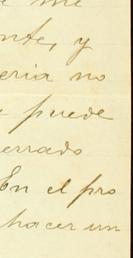 me
nte, y
eria no
puede
errado
En el pro
hacer un